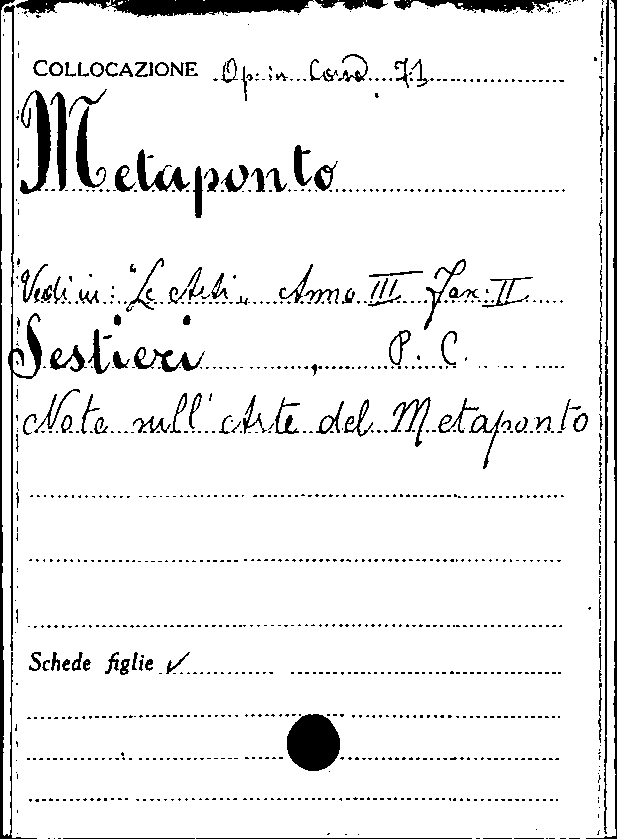 COLLOCAZIONE Op. in Corso 71
Metaponto
Vedi in: "Le Arti" Anno III Fas: II
Sestieri, P. C.
Note sull'Arte del Metaponto
Schede figlie ✓